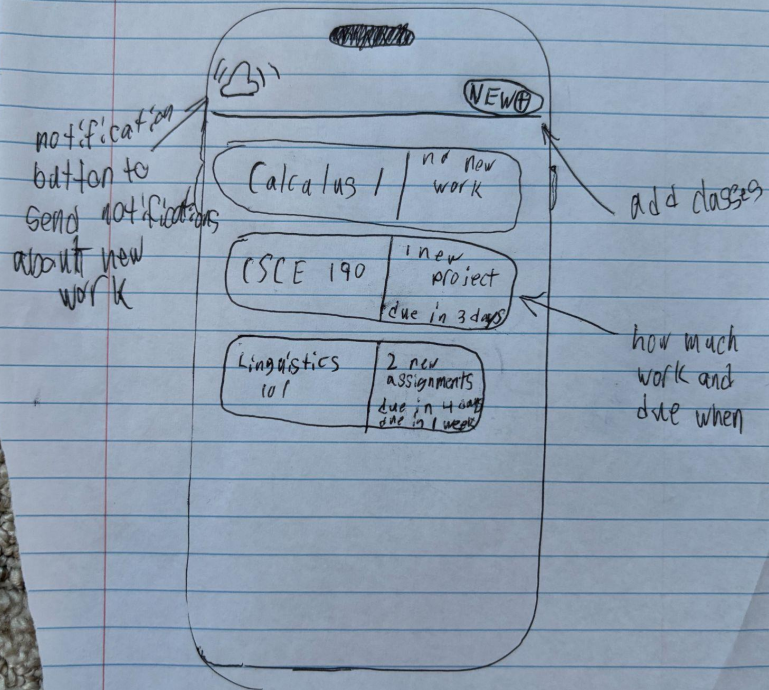 NEW+
notification
button to
send notifications
about new
work
add classes
Calculus 1
no new
work
CSCE 190
1 new
project
due in 3 days
how much
work and
due when
Linguistics
101
2 new
assignments
due in 4 days
due in 1 week